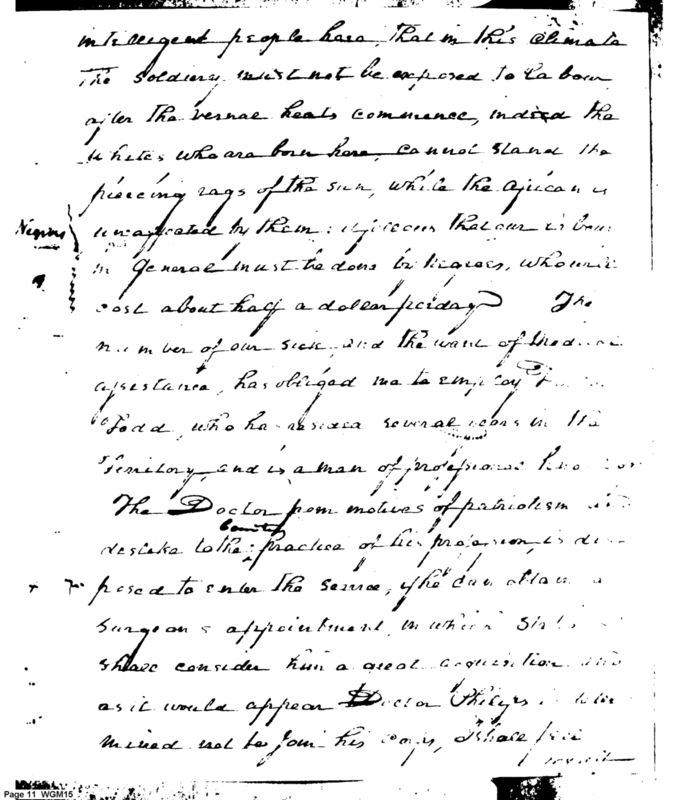 intelligent people here, that in this Climate
The soldiery must not be exposed to Labour
after the vernal heats commence, indeed the
whites who are born here, cannot stand the
piercing rays of the sun, while the African is
unaffected by them:
in General must be done by Negroes, who will
cost about half a dollar per day The
number of our sick, and the want of Medical
assistance, has obliged me to employ
Todd, who has resided several years in the
Territory, and is a man of professional
The Doctor from motives of patriotism
dislike to the country practice of his profession, is dis-
posed to enter the service, if he can attain a
Surgeons appointment, in which
shall consider him a great acquisition and
as it would appear Doctor
mined not to join his corps, I shall feel
Page 11 WGM15